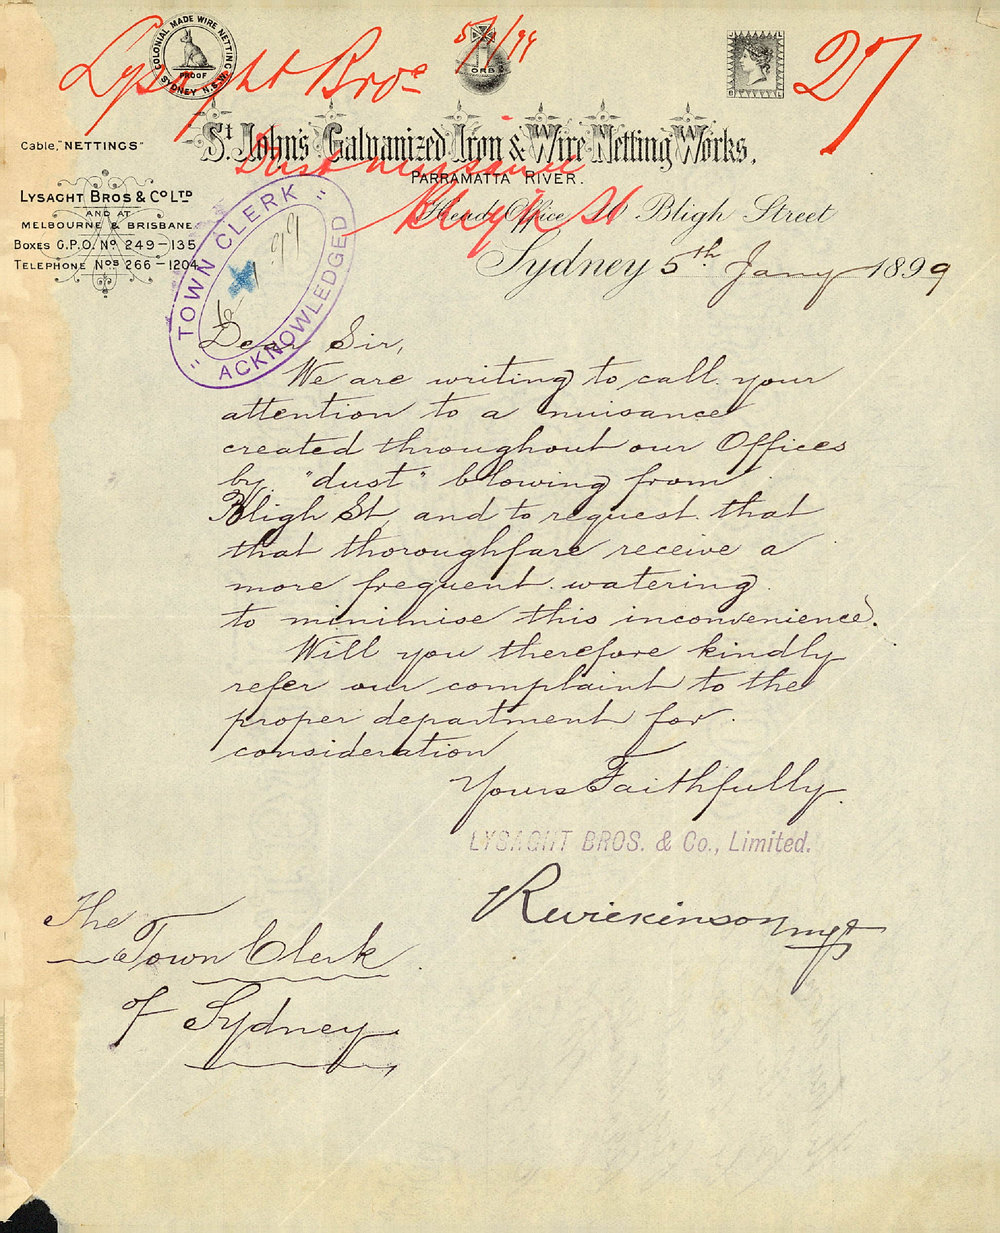 COLONIAL MADE WIRE NETTING
PROOF
SYDNEY N.S.W.
Lysaght Bros
5/1/99
ORB
27
St. John's Galvanized Iron & Wire Netting Works,
Dust nuisance
PARRAMATTA RIVER.
Bligh St
Head Office 10 Bligh Street
Cable, "NETTINGS"
LYSAGHT BROS & Co LTD
AND AT
MELBOURNE & BRISBANE
BOXES G.P.O. Nº 249-135
TELEPHONE Nos 266-1204
Sydney 5th Jany 1899
"TOWN CLERK"
"ACKNOWLEDGED"
Dear Sir,
We are writing to call your
attention to a nuisance
created throughout our Offices
by "dust" blowing from
Bligh St, and to request that
that thoroughfare receive a
more frequent watering
to minimise this inconvenience.
Will you therefore kindly
refer our complaint to the
proper department for
consideration
Yours Faithfully.
LYSAGHT BROS. & Co., Limited.
mgr
The
Town Clerk
of Sydney